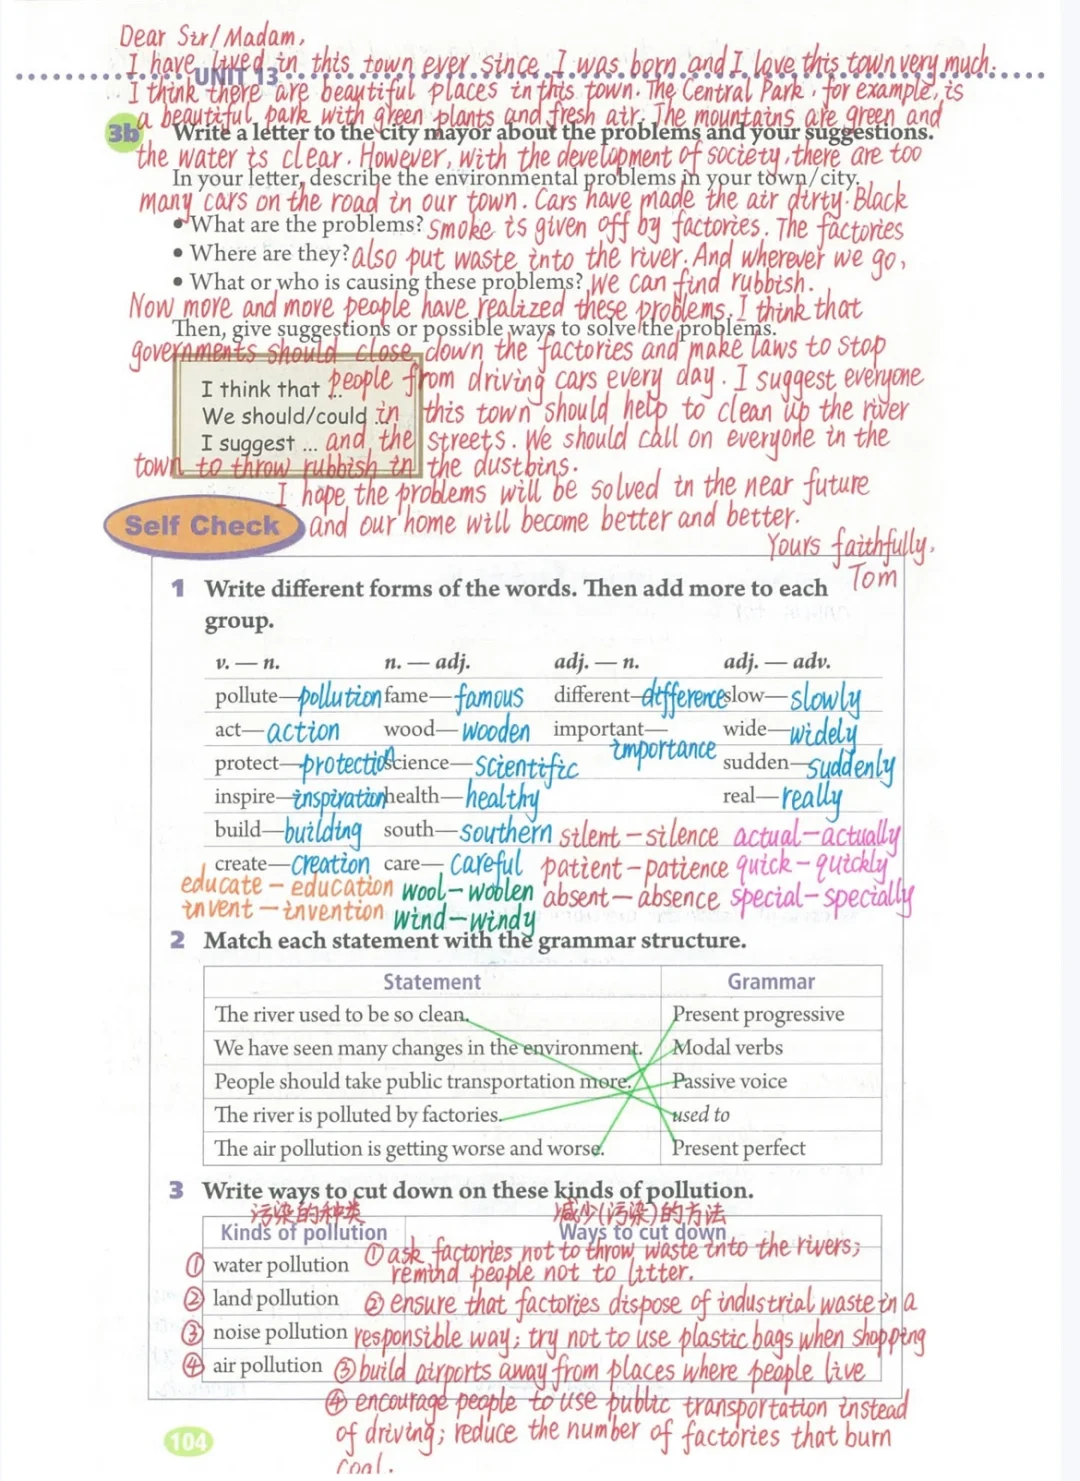 Dear Sir/Madam,
I have lived in this town ever since I was born and I love this town very much.
UNIT 13
I think there are beautiful places in this town. The Central Park, for example, is
a beautiful park with green plants and fresh air. The mountains are green and
3b Write a letter to the city mayor about the problems and your suggestions.
the water is clear. However, with the development of society, there are too
In your letter, describe the environmental problems in your town/city.
many cars on the road in our town. Cars have made the air dirty. Black
• What are the problems? smoke is given off by factories. The factories
• Where are they? also put waste into the river. And wherever we go,
• What or who is causing these problems? we can find rubbish.
Now more and more people have realized these problems. I think that
Then, give suggestions or possible ways to solve the problems.
governments should close down the factories and make laws to stop
I think that ... people from driving cars every day. I suggest everyone
We should/could ... in this town should help to clean up the river
I suggest ... and the streets. We should call on everyone in the
town to throw rubbish in the dustbins.
I hope the problems will be solved in the near future
Self Check and our home will become better and better.
Yours faithfully,
Tom
1 Write different forms of the words. Then add more to each
group.
v. — n. n. — adj. adj. — n. adj. — adv.
pollute—pollution fame—famous different—difference slow—slowly
act—action wood—wooden important—importance wide—widely
protect—protection science—scientific sudden—suddenly
inspire—inspiration health—healthy real—really
build—building south—southern silent—silence actual—actually
create—creation care—careful patient—patience quick—quickly
educate—education wool—woolen absent—absence special—specially
invent—invention wind—windy
2 Match each statement with the grammar structure.
Statement Grammar
The river used to be so clean. Present progressive
We have seen many changes in the environment. Modal verbs
People should take public transportation more. Passive voice
The river is polluted by factories. used to
The air pollution is getting worse and worse. Present perfect
3 Write ways to cut down on these kinds of pollution.
污染的种类 减少(污染)的方法
Kinds of pollution Ways to cut down
① water pollution ① ask factories not to throw waste into the rivers;
remind people not to litter.
② land pollution ② ensure that factories dispose of industrial waste in a
③ noise pollution responsible way; try not to use plastic bags when shopping
④ air pollution ③ build airports away from places where people live
④ encourage people to use public transportation instead
104 of driving; reduce the number of factories that burn
coal.